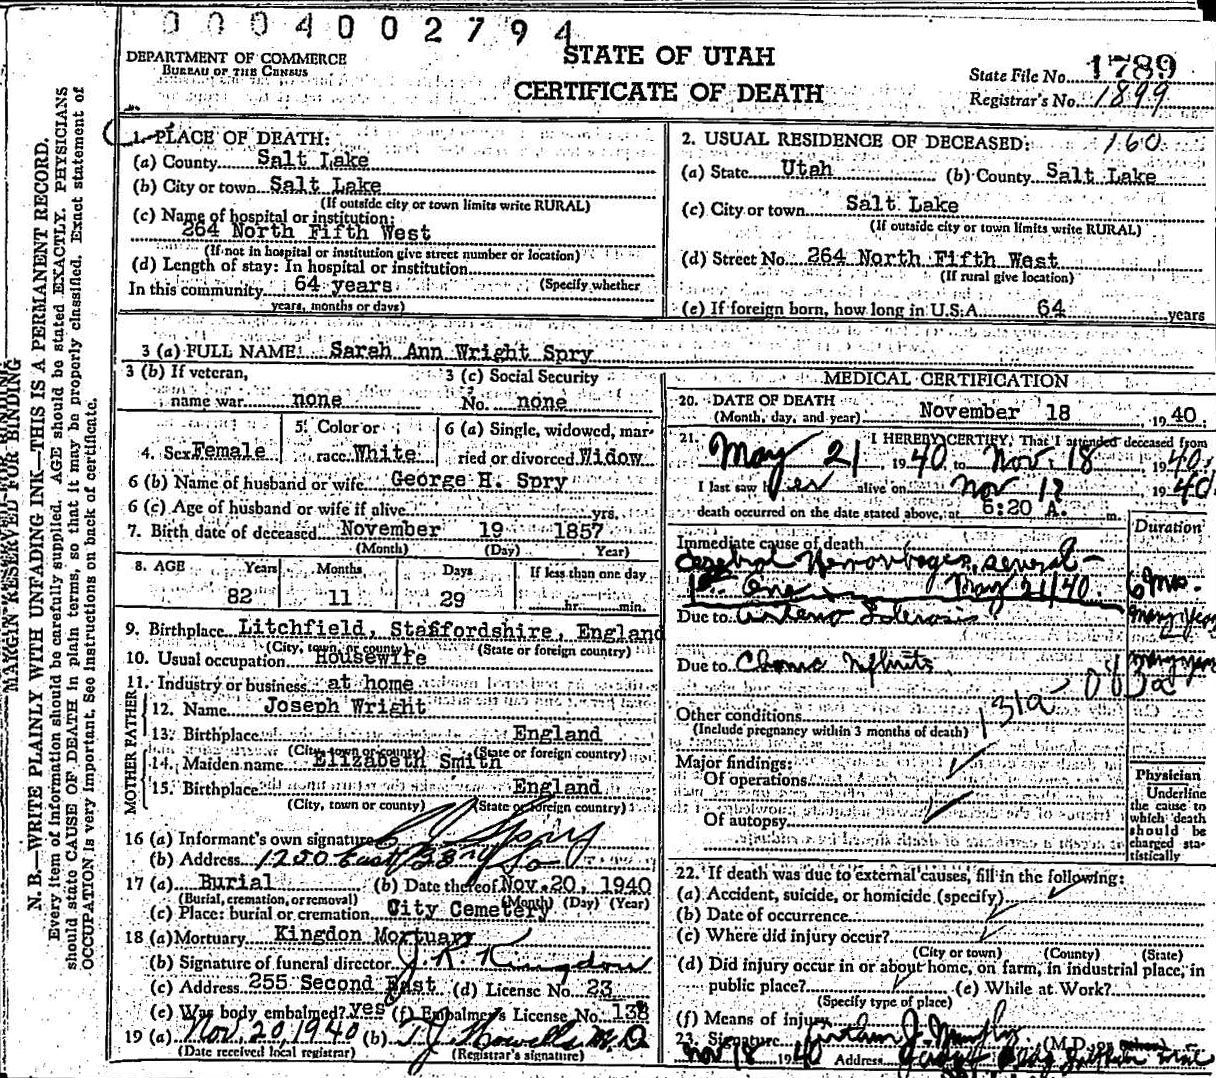 0004002794
DEPARTMENT OF COMMERCE
BUREAU OF THE CENSUS
STATE OF UTAH
CERTIFICATE OF DEATH
State File No. 1789
Registrar's No. 1899
1. PLACE OF DEATH:
(a) County Salt Lake
(b) City or town Salt Lake
(If outside city or town limits write RURAL)
(c) Name of hospital or institution:
264 North Fifth West
(If not in hospital or institution give street number or location)
(d) Length of stay: In hospital or institution
In this community 64 years (Specify whether
years, months or days)
2. USUAL RESIDENCE OF DECEASED: 160
(a) State Utah (b) County Salt Lake
(c) City or town Salt Lake
(If outside city or town limits write RURAL)
(d) Street No. 264 North Fifth West
(If rural give location)
(e) If foreign born, how long in U.S.A. 64 years
3 (a) FULL NAME: Sarah Ann Wright Spry
3 (b) If veteran,
name war none
3 (c) Social Security
No. none
4. Sex Female
5. Color or
race White
6 (a) Single, widowed, mar-
ried or divorced Widow
6 (b) Name of husband or wife George H. Spry
6 (c) Age of husband or wife if alive yrs.
7. Birth date of deceased November 19 1857
(Month) (Day) Year)
8. AGE Years Months Days If less than one day
82 11 29 hr. min.
9. Birthplace Litchfield, Staffordshire, England
(City, town or county) (State or foreign country)
10. Usual occupation Housewife
11. Industry or business at home
FATHER
12. Name Joseph Wright
13. Birthplace England
(City, town or county) (State or foreign country)
MOTHER
14. Maiden name Elizabeth Smith
15. Birthplace England
(City, town or county) (State or foreign country)
16 (a) Informant's own signature Spry
(b) Address 1250 East So
17 (a) Burial (b) Date thereof Nov. 20, 1940
(Burial, cremation, or removal) (Month) (Day) (Year)
(c) Place: burial or cremation City Cemetery
18 (a) Mortuary Kingdon Mortuary
(b) Signature of funeral director J. R. Kingdon
(c) Address 255 Second East (d) License No. 23
(e) Was body embalmed? yes (f) Embalmer's License No. 138
19 (a) Nov. 20, 1940 (b) T. J. Howells M.D.
(Date received local registrar) (Registrar's signature)
MEDICAL CERTIFICATION
20. DATE OF DEATH
(Month, day, and year) November 18 , 1940.
21. I HEREBY CERTIFY, That I attended deceased from
May 21, 1940, to Nov. 18, 1940,
I last saw her alive on Nov 1940.
death occurred on the date stated above, at 6:20 A. m.
Duration
Immediate cause of death
Cerebral Hemorrhages, several-
1st One May 21/40. 6 Mos.
Due to Arterio Sclerosis many years
Due to Chronic Nephritis many years
131a
Other conditions
(Include pregnancy within 3 months of death)
Major findings:
Of operations
Of autopsy
Physician
Underline
the cause to
which death
should be
charged sta-
tistically
22. If death was due to external causes, fill in the following:
(a) Accident, suicide, or homicide (specify)
(b) Date of occurrence
(c) Where did injury occur?
(City or town) (County) (State)
(d) Did injury occur in or about home, on farm, in industrial place, in
public place? (e) While at Work?
(Specify type of place)
(f) Means of injury
23. Signature J. Murphy (M.D. or
Nov 18 1940 Address
MARGIN RESERVED FOR BINDING
N. B.—WRITE PLAINLY WITH UNFADING INK—THIS IS A PERMANENT RECORD.
Every item of information should be carefully supplied. AGE should be stated EXACTLY. PHYSICIANS
should state CAUSE OF DEATH in plain terms, so that it may be properly classified. Exact statement of
OCCUPATION is very important. See instructions on back of certificate.